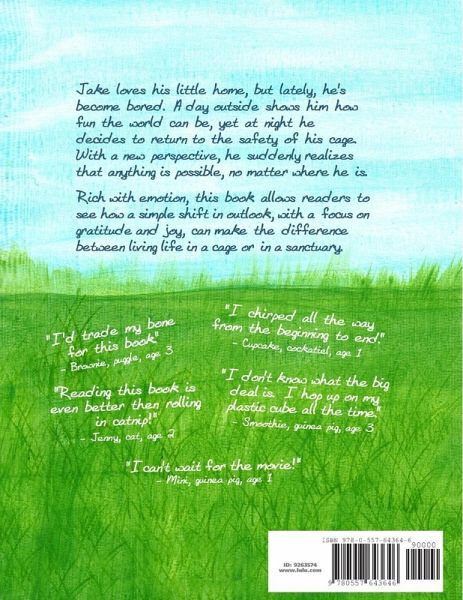 Jake loves his little home, but lately, he's
become bored. A day outside shows him how
fun the world can be, yet at night he
decides to return to the safety of his cage.
With a new perspective, he suddenly realizes
that anything is possible, no matter where he is.
Rich with emotion, this book allows readers to
see how a simple shift in outlook, with a focus on
gratitude and joy, can make the difference
between living life in a cage or in a sanctuary.
"I'd trade my bone
for this book"
- Brownie, puggle, age 3
"I chirped all the way
from the beginning to end."
- Cupcake, cockatiel, age 1
"Reading this book is
even better then rolling
in catnip!"
- Jenny, cat, age 2
"I don't know what the big
deal is. I hop up on my
plastic cube all the time."
- Smoothie, guinea pig, age 3
"I can't wait for the movie!"
- Mini, guinea pig, age 1
ISBN 978-0-557-64364-6
90000
ID: 9263574
www.lulu.com
9 780557 643646